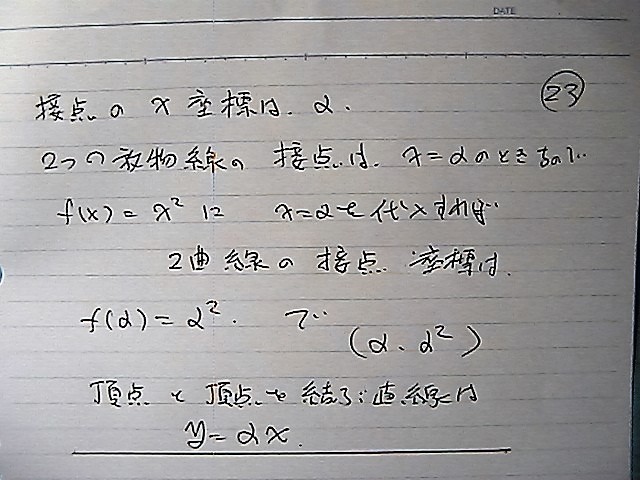 DATE
㉓
接点の x 座標は、α.
2つの放物線の 接点は、x=αのときなので
f(x)=x² に x=αを代入すれば
2曲線の接点 座標は、
f(α)=α². で (α、α²)
頂点と頂点を結ぶ直線は
y=αx.